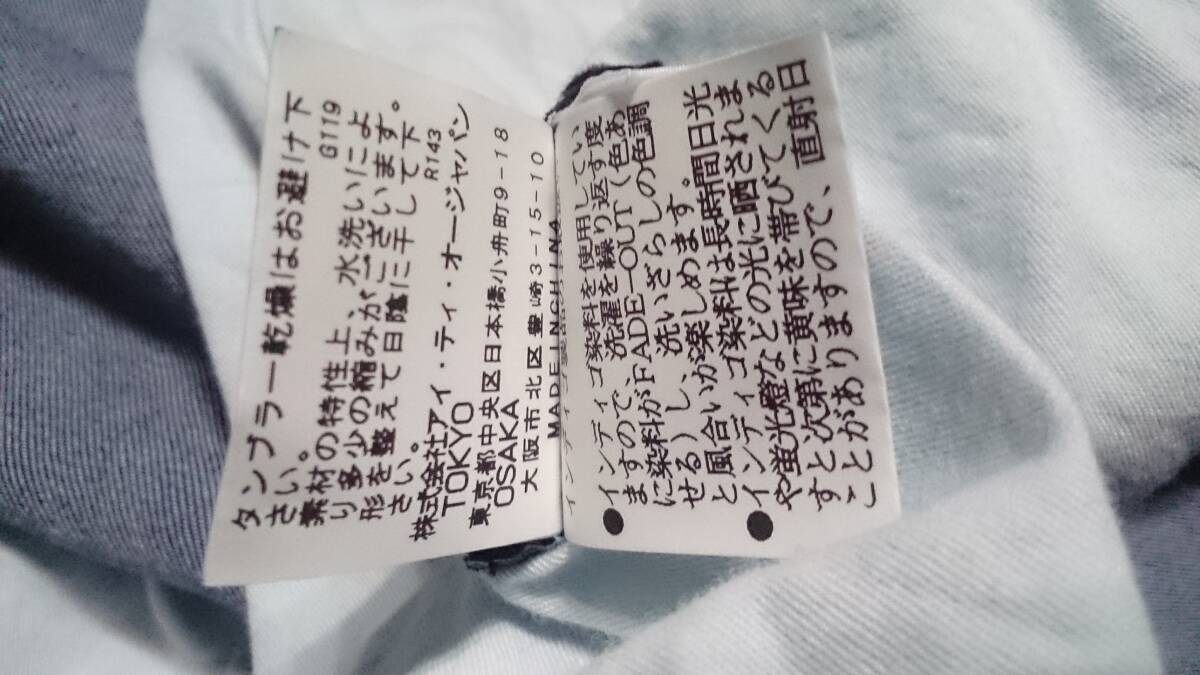 タンブラー乾燥はお避け下
さい。 G119
素材の特性上、水洗いによ
り多少の縮みがございます。
形を整えて日陰に干して下
さい。 R143
株式会社アイ・ティ・オージャパン
TOKYO
東京都中央区日本橋小舟町9-18
OSAKA
大阪市北区豊崎3-15-10
MADE IN CHINA
●インディゴ染料を使用してい
ますので、洗濯を繰り返す度
に染料がFADE-OUT(色あ
せる)し、洗いざらしの色調
と風合いが楽しめます。
●インディゴ染料は長時間日光
や蛍光燈などの光に晒されま
すと次第に黄味を帯びてくる
ことがありますので、直射日